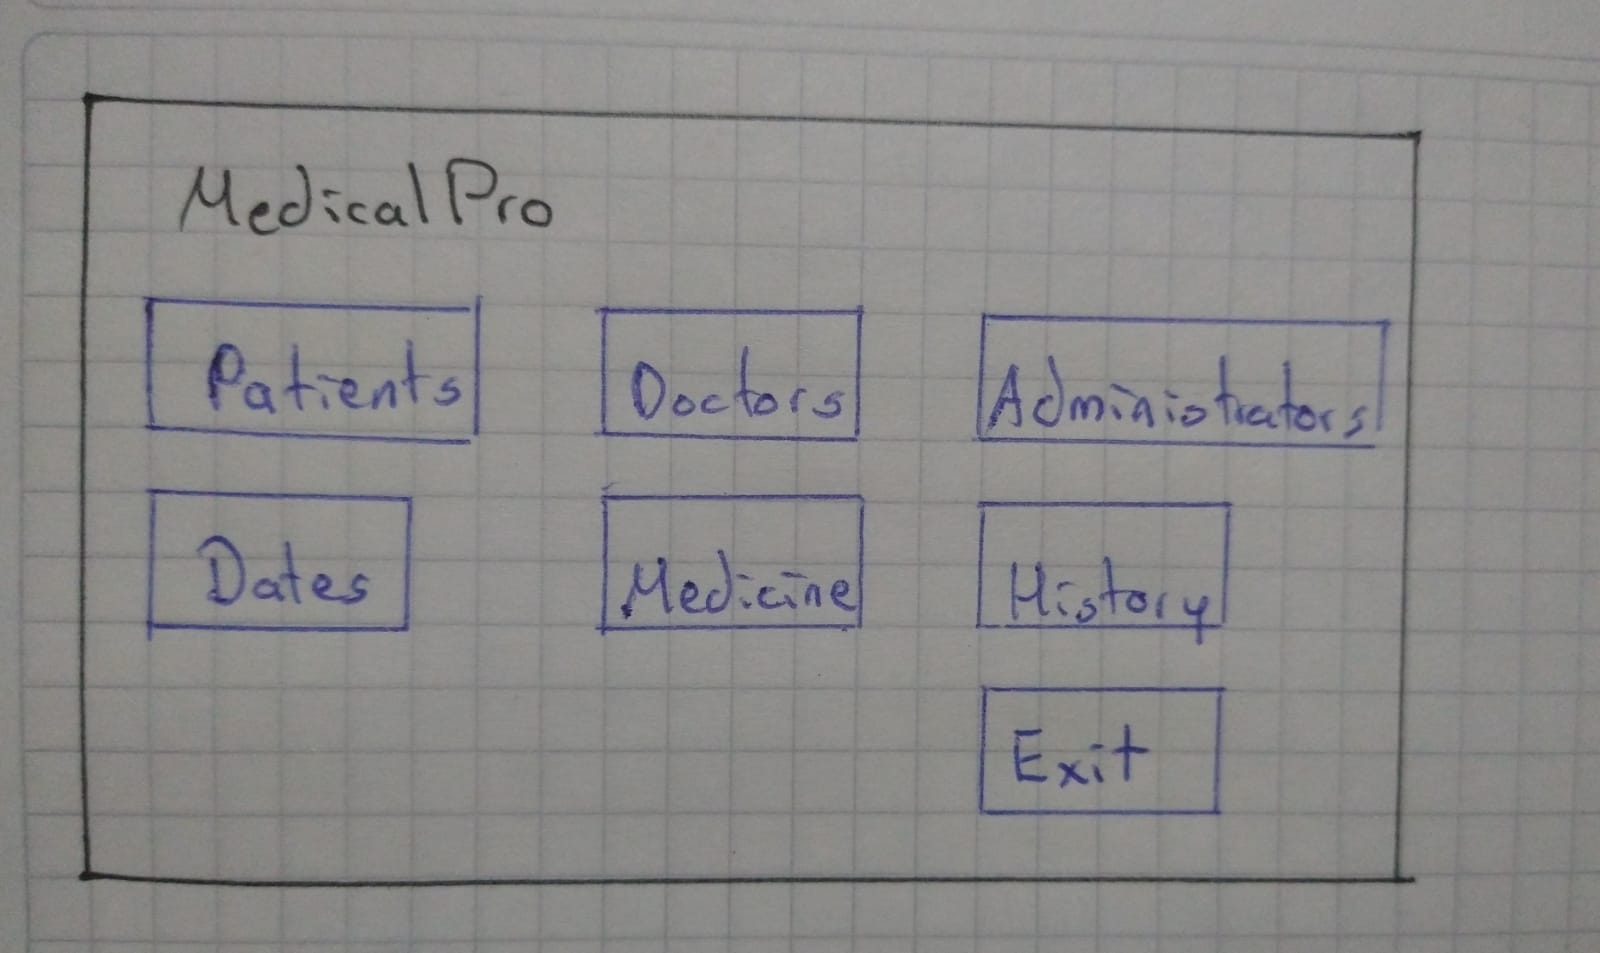 Medical Pro
Patients Doctors Administrators
Dates Medicine History
Exit